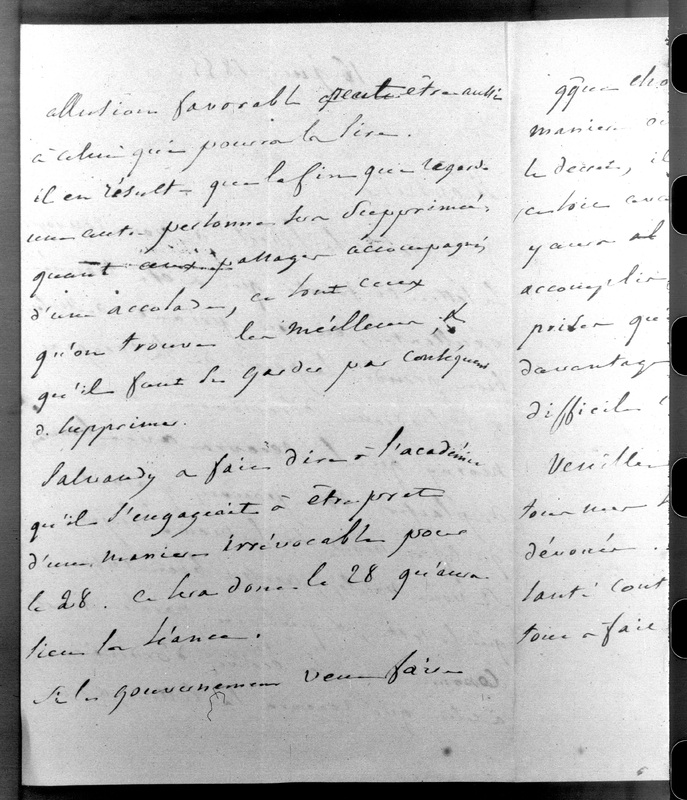 allusion favorable peut être aussi
à celui qui pourra la lire.
il en résulte que la fin que regarde
une autre personne sera supprimée.
quant aux passages accompagnés
d'une accolade, ce sont ceux
qu'on trouve les meilleurs et
qu'il faut se garder par conséquent
de supprimer.
Salvandy a fait dire à l'académie
qu'il s'engageait à être prêt
d'une manière irrévocable pour
le 28. ce sera donc le 28 qu'aura
lieu la séance.
Si le gouvernement veut faire
qque cho
manière
le décret, il
ce soir
y aura
accomplir
priser que
davantage
difficile
Veuillez
tous mes
dévoués.
santé cont
tout à fait